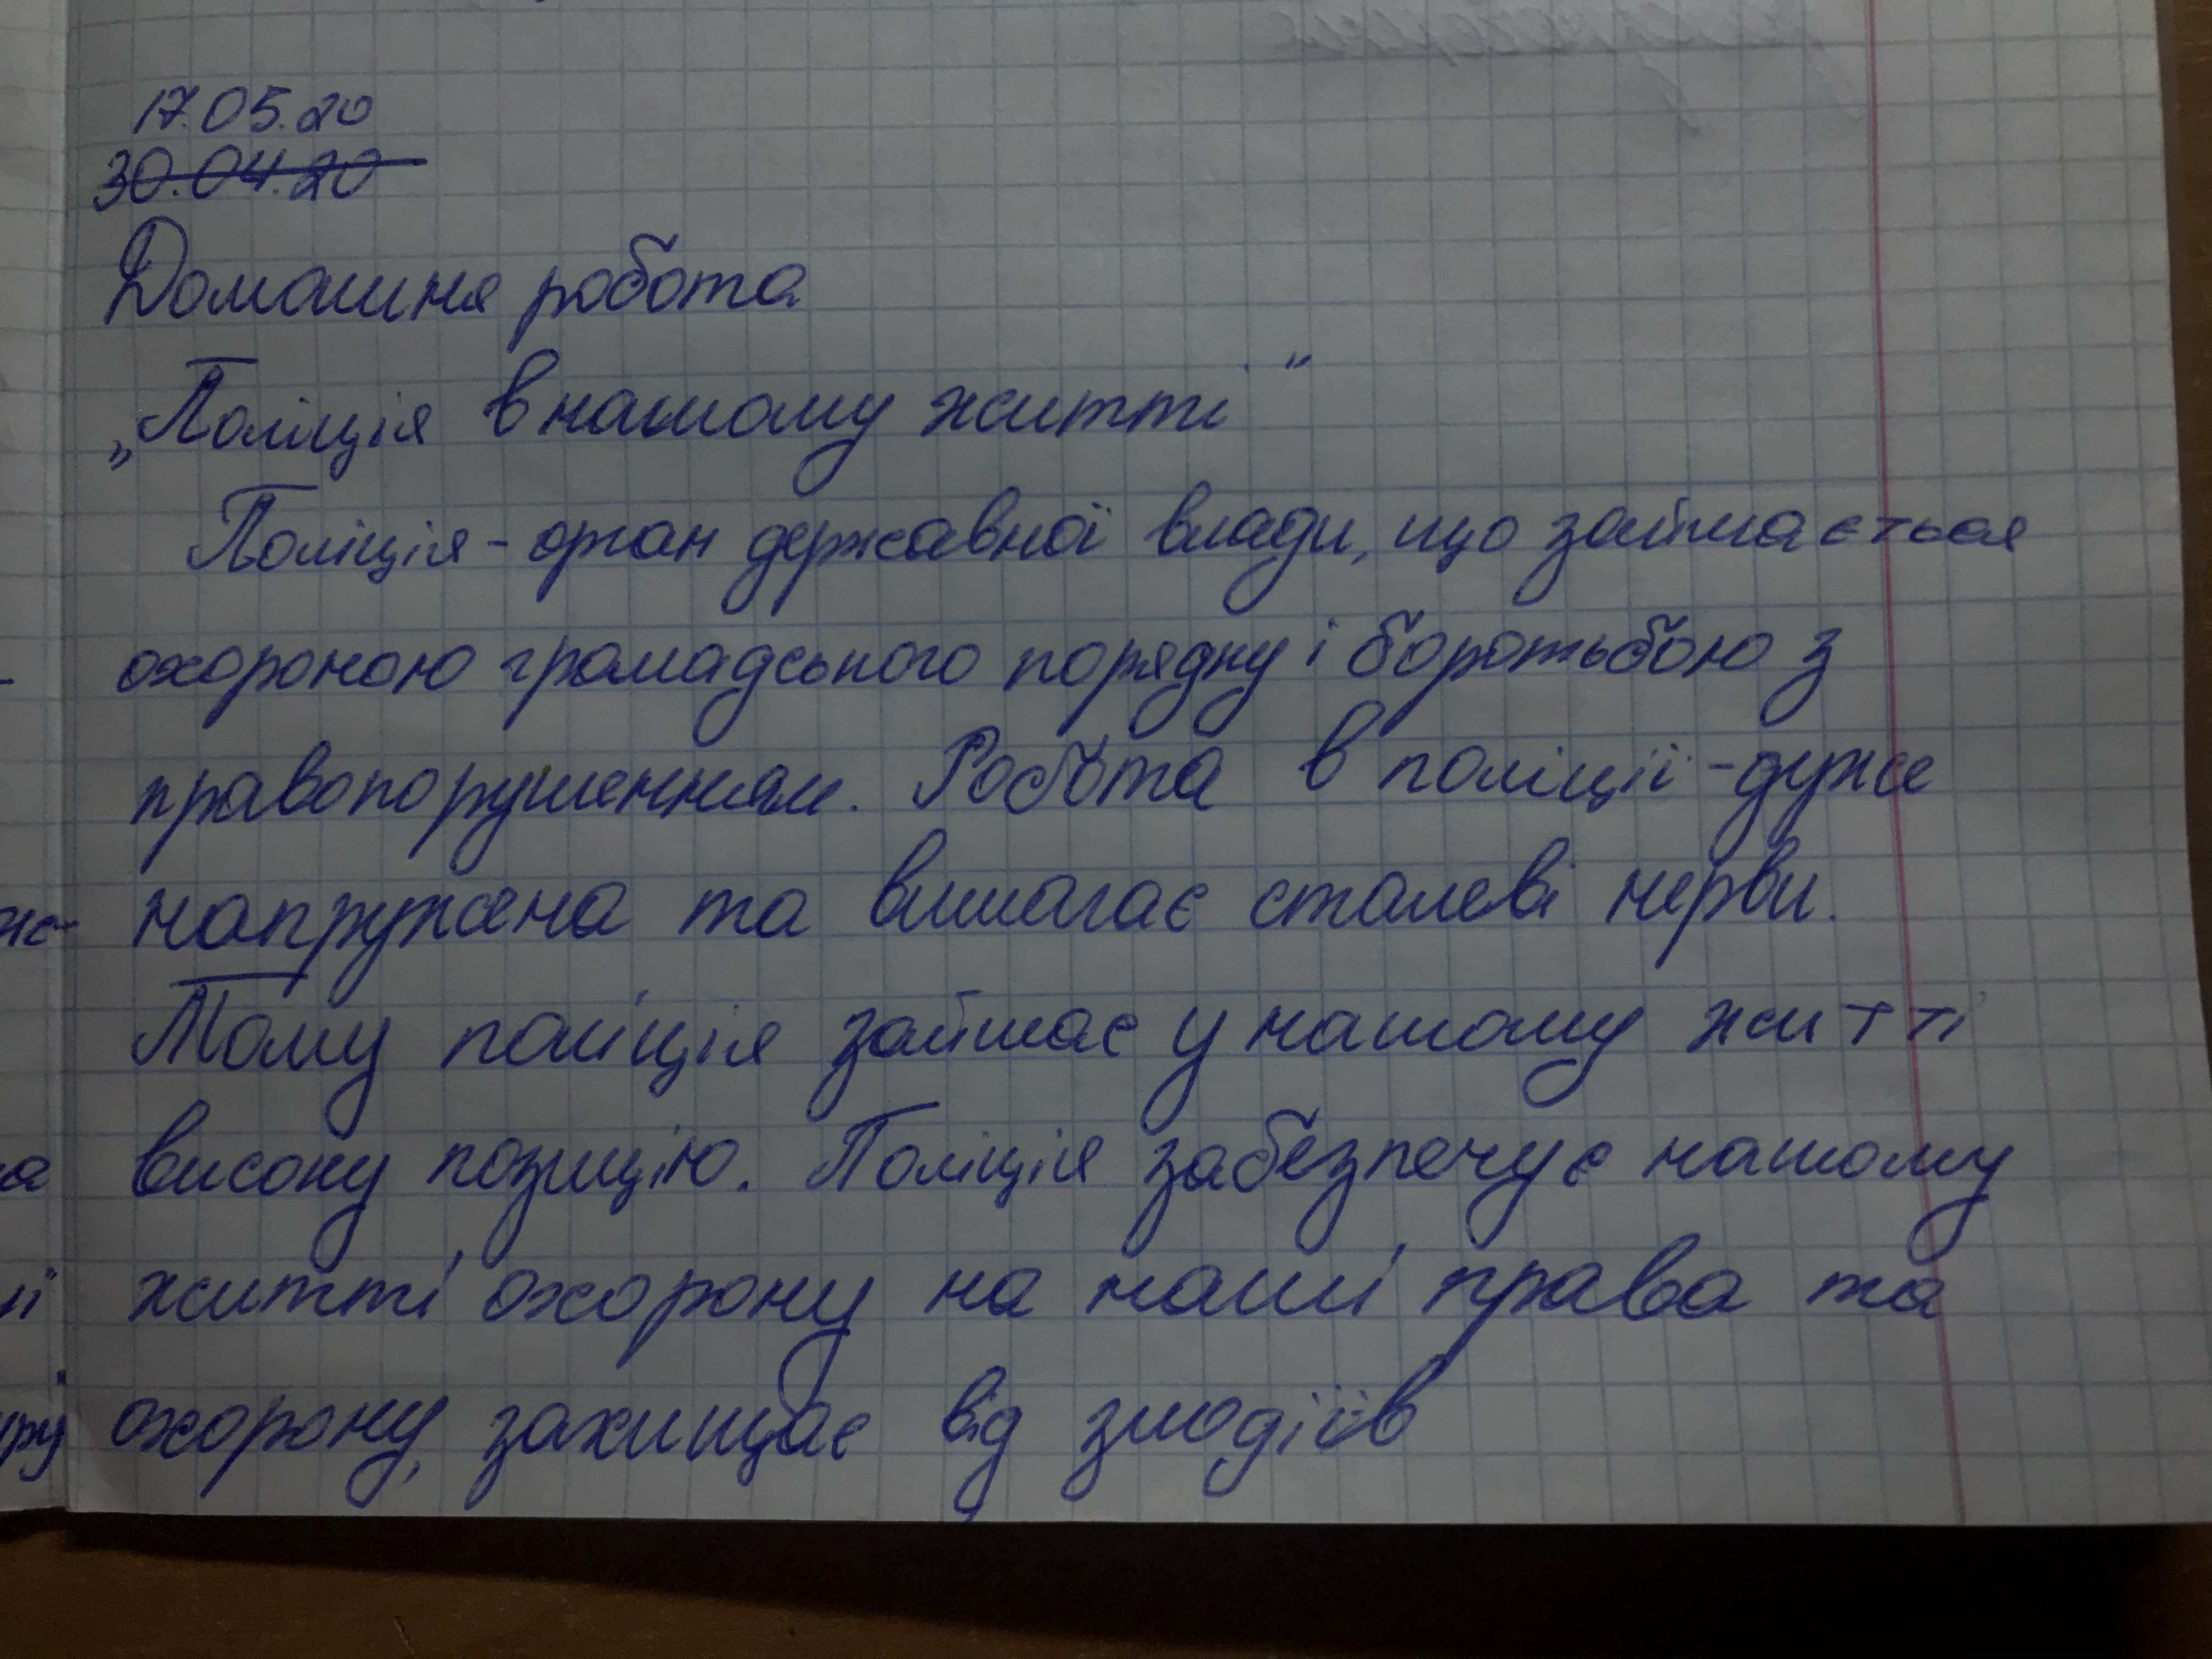 17.05.20
30.04.20
Домашня робота
„Поліція в нашому житті"
Поліція - орган державної влади, що займається
охороною громадського порядку і боротьбою з
правопорушенням. Робота в поліції - дуже
напружена та вимагає сталеві нерви.
Тому поліція займає у нашому житті
високу позицію. Поліція забезпечує нашому
житті охорону на наші права та
охорону, захищає від злодіїв